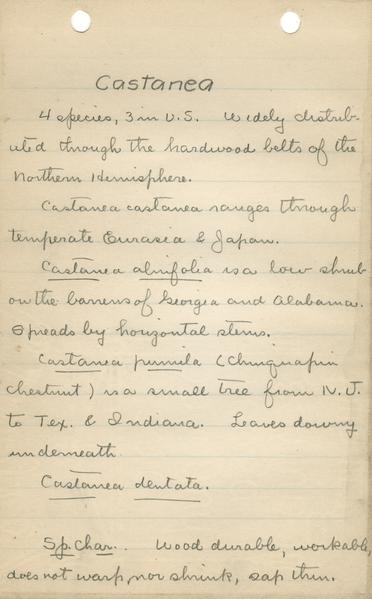 Castanea
4 species, 3 in U.S. Widely distrib-
uted through the hardwood belts of the
Northern Hemisphere.
Castanea castanea ranges through
temperate Eurasia & Japan.
Castanea alnifolia is a low shrub
on the barrens of Georgia and Alabama.
Spreads by horizontal stems.
Castanea pumila (Chinquapin
chestnut) is a small tree from N.J.
to Tex. & Indiana. Leaves downy
underneath.
Castanea dentata.
Sp. Char. Wood durable, workable,
does not warp, nor shrink, sap thin.